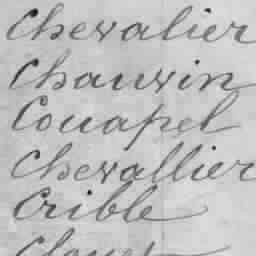 Chevalier
Chauvin
Couapel
Chevallier
Crible